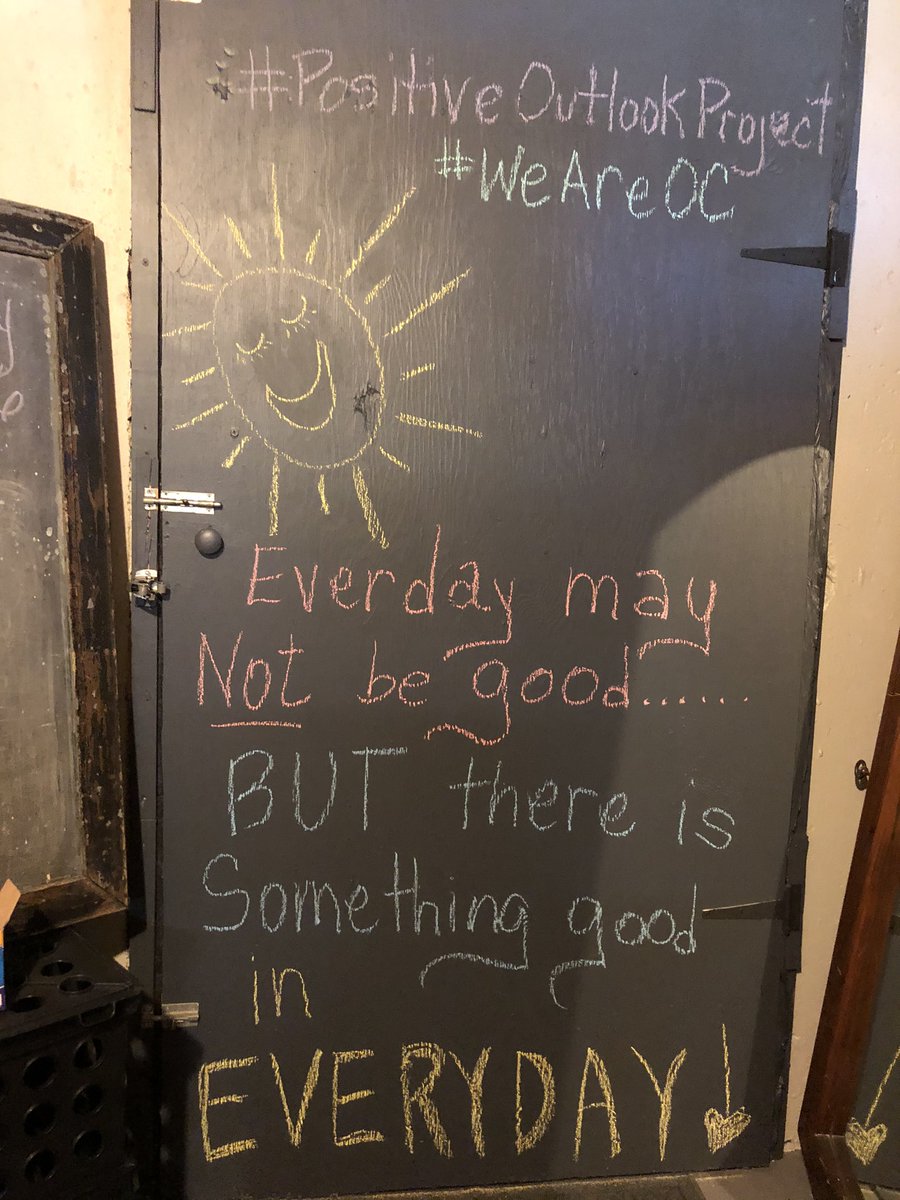 #PositiveOutlookProject
#WeAreOC
Everday may
Not be good......
BUT there is
Something good
in
EVERYDAY!